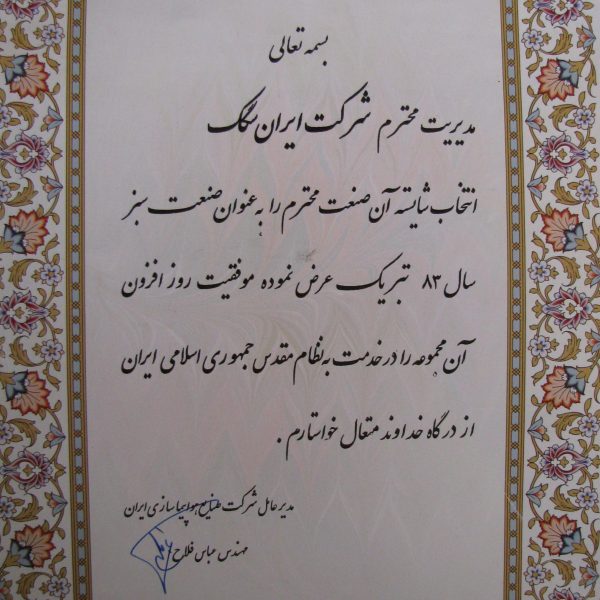 بسمه تعالی
مدیریت محترم شرکت ایران کاک
انتخاب شایسته آن صنعت محترم را به عنوان صنعت سبز
سال ۸۳ تبریک عرض نموده موفقیت روز افزون
آن مجموعه را در خدمت به نظام مقدس جمهوری اسلامی ایران
از درگاه خداوند متعال خواستارم .
مدیر عامل شرکت صنایع هواپیماسازی ایران
مهندس عباس فلاح